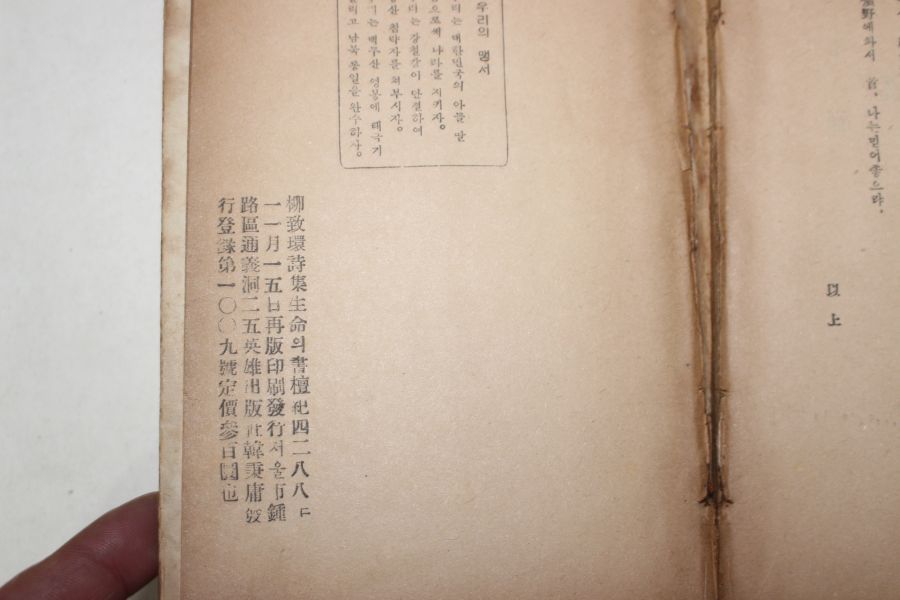 曠野에 와서
首. 나는 믿어 좋으랴.
以上
우리의 맹서
리는 대한민국의 아들 딸
으로써 나라를 지키자.
리는 강철같이 단결하여
산 침략자를 쳐부시자.
리는 백두산 영봉에 태극기
날리고 남북 통일을 완수하자.
柳致環詩集生命의書檀紀四二八八年
一一月一五日再版印刷發行서울市鍾
路區通義洞二五英雄出版社韓秉庸發
行登錄第一〇〇九號定價參百圜也